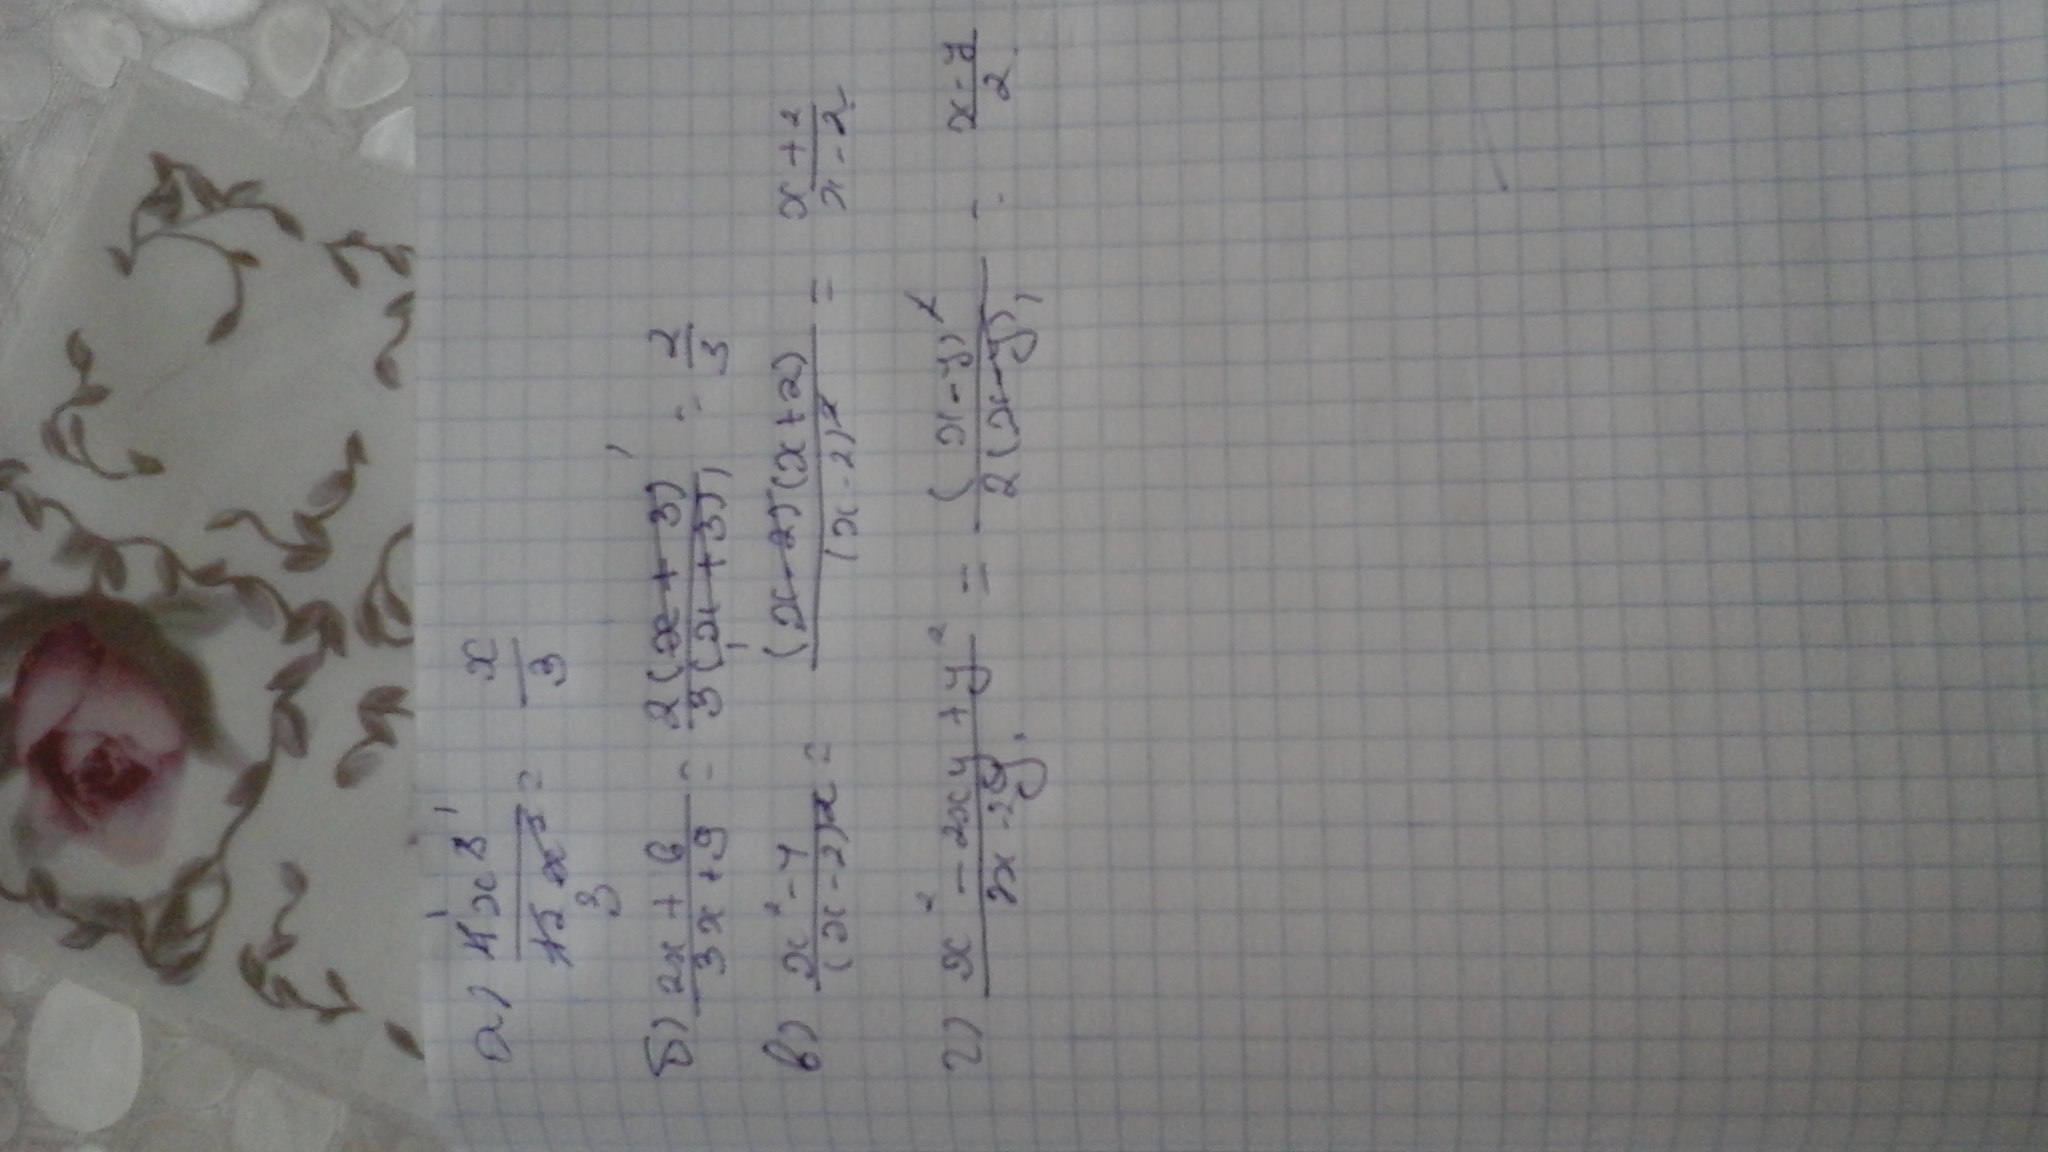 а) 4x³/12x³ = x/3
б) 2x + 6/3x + 9 = 2(x + 3)/3(x + 3) = 2/3
в) x² - 4/(x - 2)² = (x - 2)(x + 2)/(x - 2)² = x + 2/x - 2
г) x² - 2xy + y²/2x - 2y = (x - y)²/2(x - y) = x - y/2